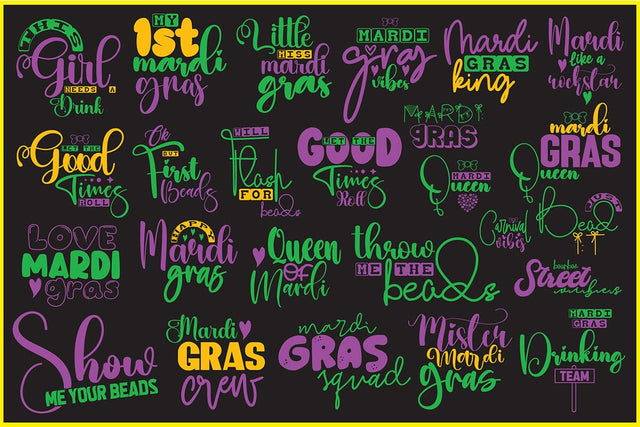 THIS
Girl
NEEDS A
Drink
MY
1st
mardi
gras
Little
MISS
mardi
gras
MARDI
gras
vibes
Mardi
GRAS
king
Mardi
like a
rockstar
LET THE
Good
Times
ROLL
Ok
BUT
First
Beads
WILL
Flash
FOR
beads
LET THE
GOOD
Times
Roll
MARDI
GRAS
MARDI
Queen
mardi
GRAS
Queen
LOVE
MARDI
gras
HAPPY
Mardi
gras
Queen
OF
Mardi
throw
ME THE
beads
Carnival
vibes
JUST
Bead
bourbon
Street
Show
ME YOUR BEADS
Mardi
GRAS
crew
mardi
GRAS
squad
Mister
Mardi
gras
MARDI
GRAS
Drinking
TEAM